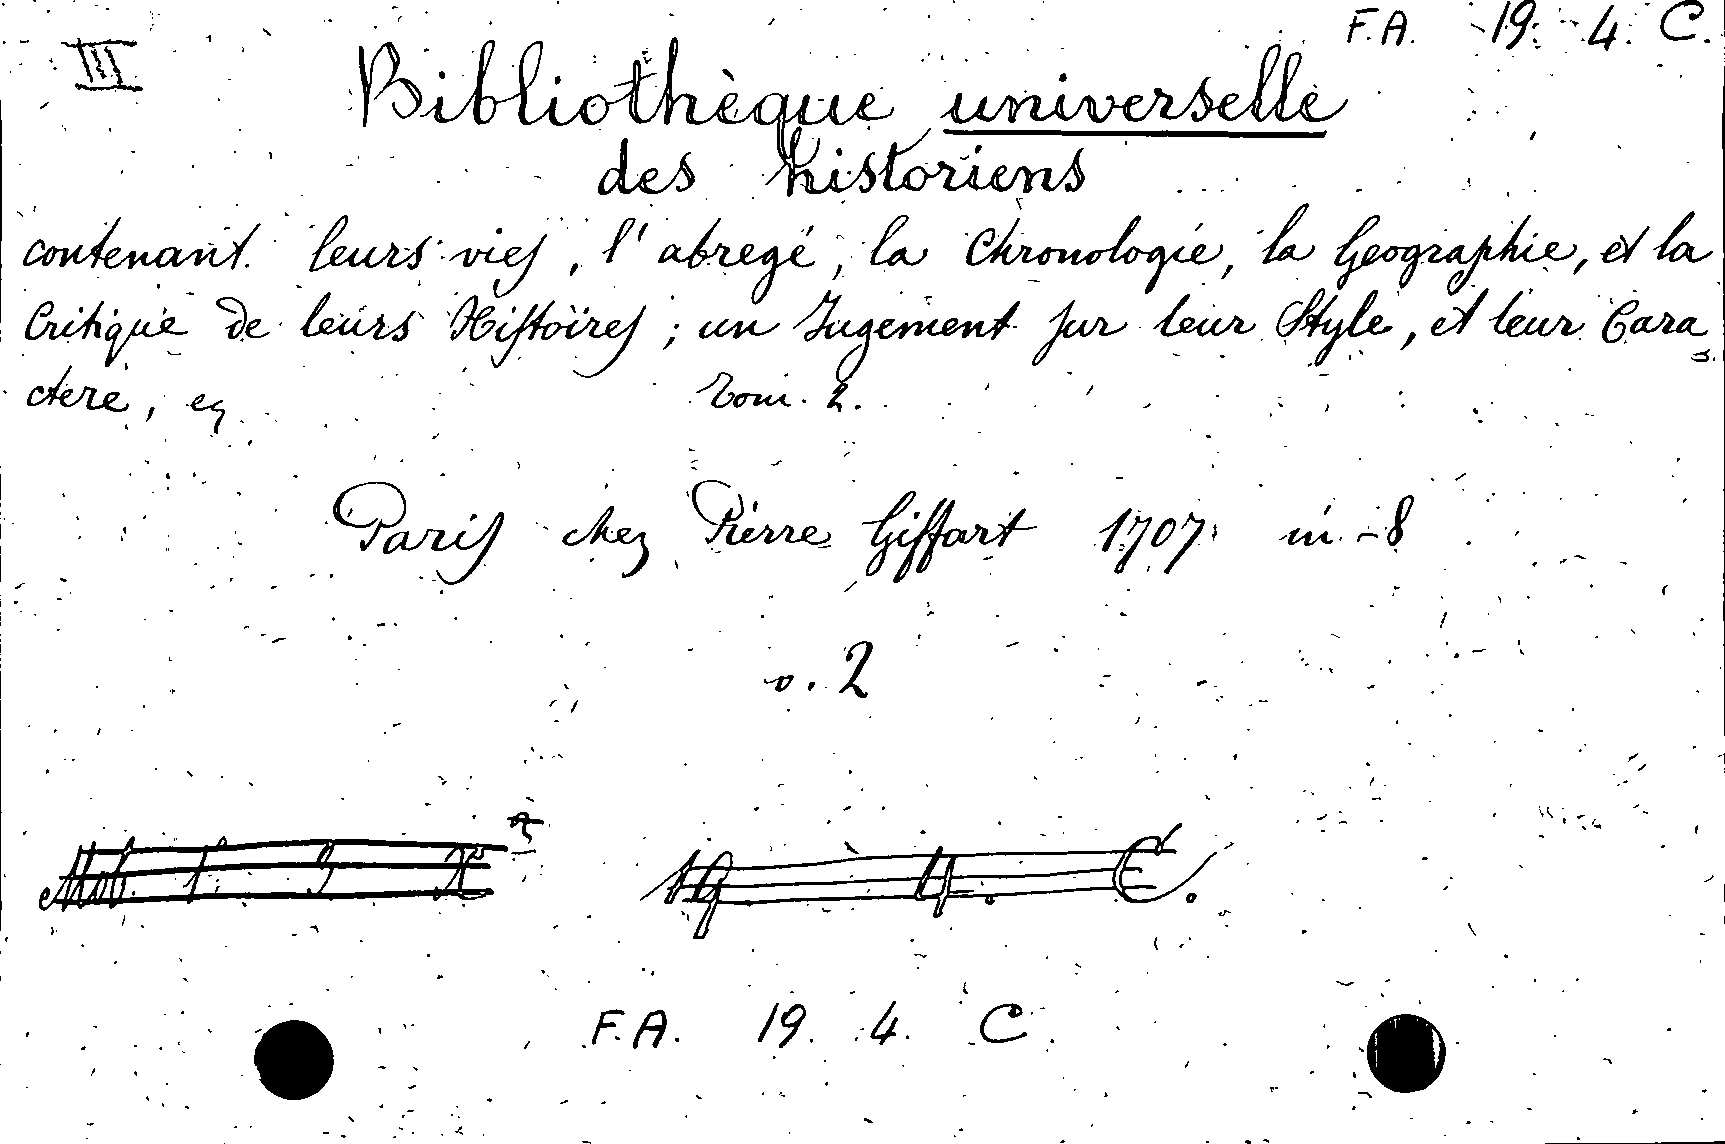 III
F.A. 19. 4. C.
Bibliothèque universelle
des historiens
contenant leurs vies, l'abregé, la Chronologie, la Geographie, et la
Critique de leurs Histoires; un Jugement sur leur Style, et leur Cara
ctere,
tom. 2.
Paris chez Pierre Giffart 1707 in-8
v. 2
19 4. C.
F.A. 19. 4. C